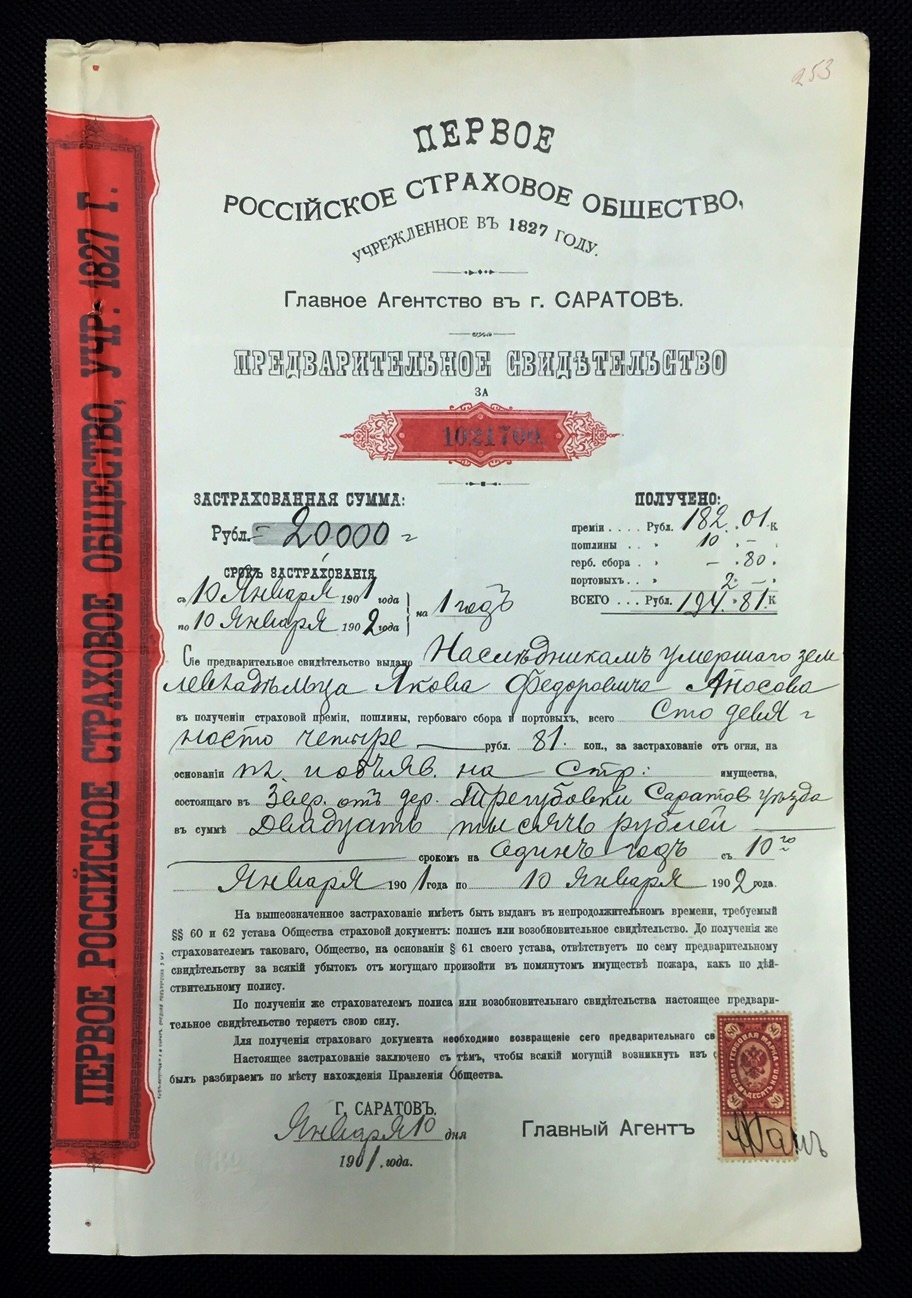 253
ПЕРВОЕ
РОССІЙСКОЕ СТРАХОВОЕ ОБЩЕСТВО,
УЧРЕЖДЕННОЕ ВЪ 1827 ГОДУ.
Главное Агентство въ г. САРАТОВѢ.
ПРЕДВАРИТЕЛЬНОЕ СВИДѢТЕЛЬСТВО
ЗА
1021700.
ЗАСТРАХОВАННАЯ СУММА:
Рубл. 20,000
СРОКЪ ЗАСТРАХОВАНІЯ
съ 10 Января 1901 года
по 10 Января 1902 года
на 1 годъ
ПОЛУЧЕНО:
преміи .... Рубл. 182. 01 К
пошлины .. " 10 " – "
герб. сбора .. " – " 80 "
портовыхъ .. " 2 " – "
ВСЕГО ... Рубл. 194 " 81 К
Сіе предварительное свидѣтельство выдано Наслѣдникамъ умершаго зем
левладѣльца Якова Федоровича Аносова
въ полученіи страховой преміи, пошлины, гербоваго сбора и портовыхъ, всего Сто девя-
носто четыре рубл. 81. коп., за застрахованіе отъ огня, на
основаніи на Стр: имущества,
состоящаго въ отъ дер. Трегубовки Саратов уѣзда
въ суммѣ Двадцать тысячъ рублей
срокомъ на Одинъ годъ съ 10го
Января 1901 года по 10 Января 1902 года.
На вышеозначенное застрахованіе имѣетъ быть выданъ въ непродолжительномъ времени, требуемый
§§ 60 и 62 устава Общества страховой документъ: полисъ или возобновительное свидѣтельство. До полученія же
страхователемъ таковаго, Общество, на основаніи § 61 своего устава, отвѣтствуетъ по сему предварительному
свидѣтельству за всякій убытокъ отъ могущаго произойти въ помянутомъ имуществѣ пожара, какъ по дѣй-
ствительному полису.
По полученіи же страхователемъ полиса или возобновительнаго свидѣтельства настоящее предвари-
тельное свидѣтельство теряетъ свою силу.
Для полученія страховаго документа необходимо возвращеніе сего предварительнаго св
Настоящее застрахованіе заключено съ тѣмъ, чтобы всякій могущій возникнуть изъ
былъ разбираемъ по мѣсту нахожденія Правленія Общества.
Г. САРАТОВЪ.
Января 10 дня
1901. года.
Главный Агентъ
ГЕРБОВАЯ МАРКА
ВОСЕМЬДЕСЯТЪ КОП.
80
80
80
80
ПЕРВОЕ РОССІЙСКОЕ СТРАХОВОЕ ОБЩЕСТВО, УЧР. 1827 Г.